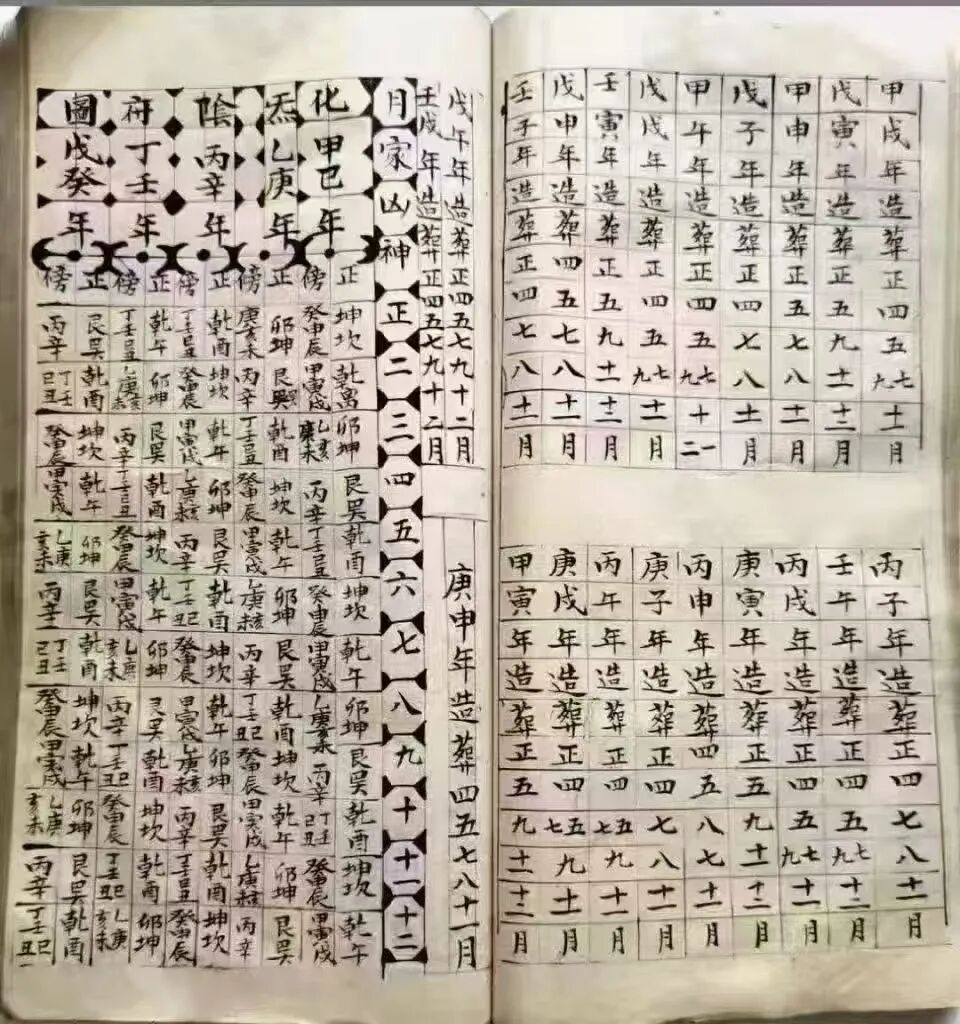 甲戌年造葬正四五七九十一月
戊寅年造葬正五九十一十二月
甲申年造葬正五七八十二月
戊子年造葬正四七八十一月
甲午年造葬正四五七九十一二
戊戌年造葬正四五七九十一月
壬寅年造葬正五九十一十二月
戊申年造葬四五七八十一月
壬子年造葬正四七八十一月
丙子年造葬正四七八十一月
壬午年造葬正四五七九十二月
丙戌年造葬正四五七九十一月
庚寅年造葬正五九十一十二月
丙申年造葬四五八七十一月
庚子年造葬正四七八十一月
丙午年造葬正四五七九十二月
庚戌年造葬正四五七九十一月
甲寅年造葬正五九十一十二月
戊午年造葬正四五七九十二月
壬戌年造葬正四五七九十二月
庚申年造葬四五七八十一月
月家凶神正二三四五六七八九十十一十二
化炁陰府圖
甲己年
乙庚年
丙辛年
丁壬年
戊癸年
正 坤坎 卯坤 艮巽 乾酉 坤坎 乾午 卯坤 艮巽 乾酉 坤坎 乾午
傍 癸申辰 甲寅戌 乙亥庚未 丙辛 丁壬丑巳 癸申辰 甲寅戌 乙亥庚未 丙辛 丁壬丑巳 癸申辰 甲寅戌
正 卯坤 艮巽 乾酉 坤坎 乾午 卯坤 艮巽 乾酉 坤坎 乾午 卯坤 艮巽
傍 庚乙亥未 丙辛 丁壬丑巳 癸申辰 甲寅戌 乙庚亥未 丙辛 丁壬丑巳 癸申辰 甲寅戌 乙庚亥未 丙辛
正 乾酉 坤坎 乾午 卯坤 艮巽 乾酉 坤坎 乾午 卯坤 艮巽 乾酉 坤坎
傍 丁壬丑巳 癸申辰 甲寅戌 乙庚亥未 丙辛 丁壬丑巳 癸申辰 甲寅戌 乙庚亥未 丙辛 丁壬丑巳 癸申辰
正 乾午 卯坤 艮巽 乾酉 坤坎 乾午 卯坤 艮巽 乾酉 坤坎 乾酉 卯坤
傍 丁壬丑巳 乙庚亥未 丙辛 丁壬丑巳 癸申辰 甲寅戌 乙庚亥未 丙辛 丁壬丑巳 癸申辰 丁壬丑巳 乙庚亥未
正 艮巽 乾酉 坤坎 乾午 卯坤 艮巽 乾酉 坤坎 乾午 卯坤 艮巽 乾酉
傍 丙辛 丁壬己丑 癸申辰 甲寅戌 乙庚亥未 丙辛 丁壬己丑 癸申辰 甲寅戌 乙庚亥未 丙辛 丁壬丑巳